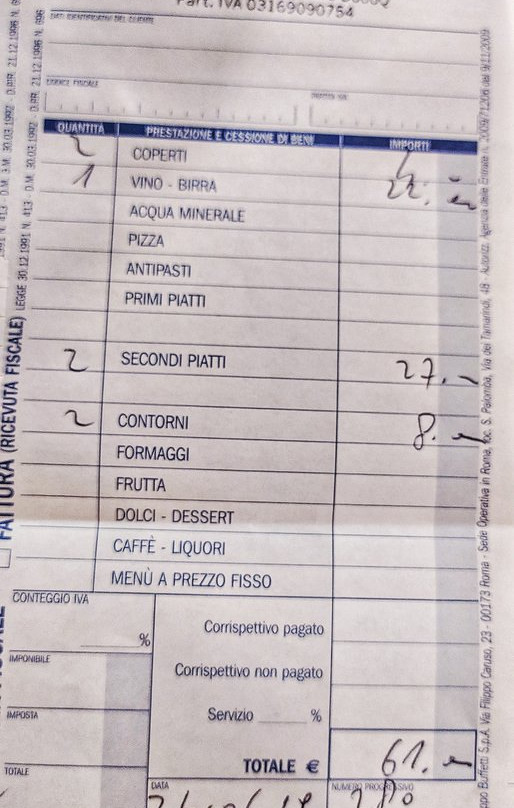 Part. IVA 03169090754
DATI IDENTIFICATIVI DEL CLIENTE
CODICE FISCALE
QUANTITÀ PRESTAZIONE E CESSIONE DI BENI IMPORTI
2 COPERTI 4
1 VINO - BIRRA 22.
ACQUA MINERALE
PIZZA
ANTIPASTI
PRIMI PIATTI
2 SECONDI PIATTI 27.
2 CONTORNI 8.
FORMAGGI
FRUTTA
DOLCI - DESSERT
CAFFÈ - LIQUORI
MENÙ A PREZZO FISSO
CONTEGGIO IVA
%
IMPONIBILE
IMPOSTA
TOTALE
Corrispettivo pagato
Corrispettivo non pagato
Servizio %
TOTALE € 61.
DATA NUMERO PROGRESSIVO
FATTURA (RICEVUTA FISCALE) LEGGE 30.12.1991 N. 413 - D.M. 30.03.1992 - D.P.R. 21.12.1996 N. 696
S.p.A. Via Filippo Caruso, 23 - 00173 Roma - Sede Operativa in Roma, loc. S. Palomba, Via dei Tamarindi, 48 - Autorizz. Agenzia delle Entrate n.